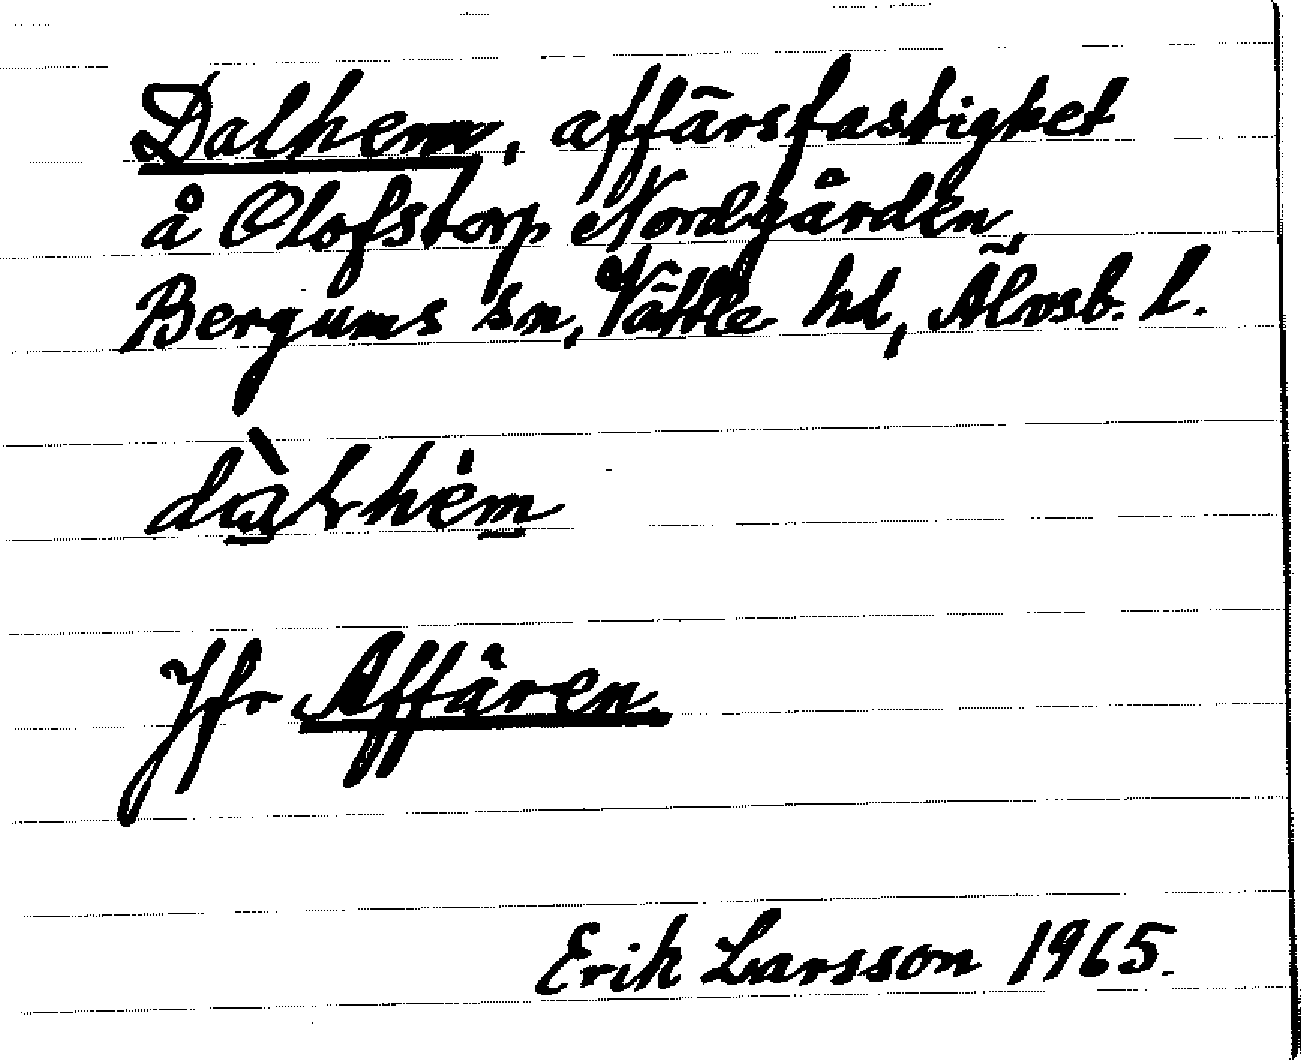 Dalhem, affärsfastighet
å Olofstorp Nordgården,
Bergums sn, Vättle hd, Älvsb. l.
dàlhèm
Jfr Affären.
Erik Larsson 1965.